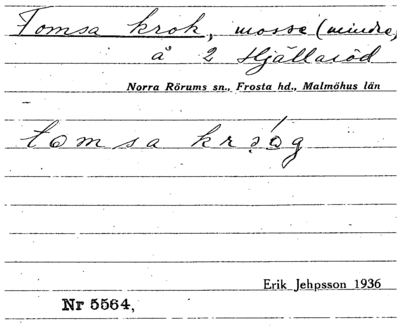 Tomsa krok, mosse (mindre)
å 2 Hjällasöd
Norra Rörums sn., Frosta hd., Malmöhus län
tomsa
Erik Jehpsson 1936
Nr 5564,